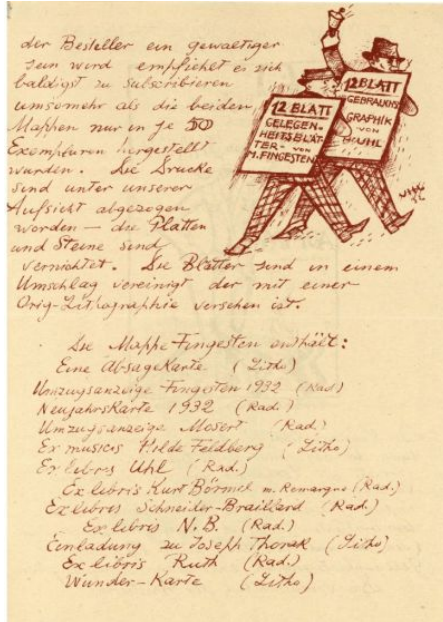 der Besteller ein gewaltiger
sein wird empfiehlt es sich
baldigst zu subscribieren
umsomehr als die beiden
Mappen nur in je 50
Exemplaren hergestellt
wurden. Die Drucke
sind unter unserer
Aufsicht abgezogen
worden — die Platten
und Steine sind
vernichtet. Die Blätter sind in einem
Umschlag vereinigt der mit einer
Orig-Lithographie versehen ist.
12 BLATT
GELEGEN-
HEITSBLÄT-
TER - VON
M. FINGESTEN
12 BLATT
GEBRAUCHS
GRAPHIK
VON
UHL
Die Mappe Fingesten enthält:
Eine Absagekarte (Litho)
Umzugsanzeige Fingesten 1932 (Rad)
Neujahrskarte 1932 (Rad.)
Umzugsanzeige Mosert (Rad.)
Ex musicis Hilde Feldberg (Litho)
Ex libris Uhl (Rad.)
Ex libris Kurt Börmel m. Remarque (Rad.)
Ex libris Schneider-Brailliard (Rad.)
Ex libris N.B (Rad.)
Einladung zu Joseph Thorak (Litho)
Ex libris Ruth (Rad.)
Wunder-Karte (Litho)